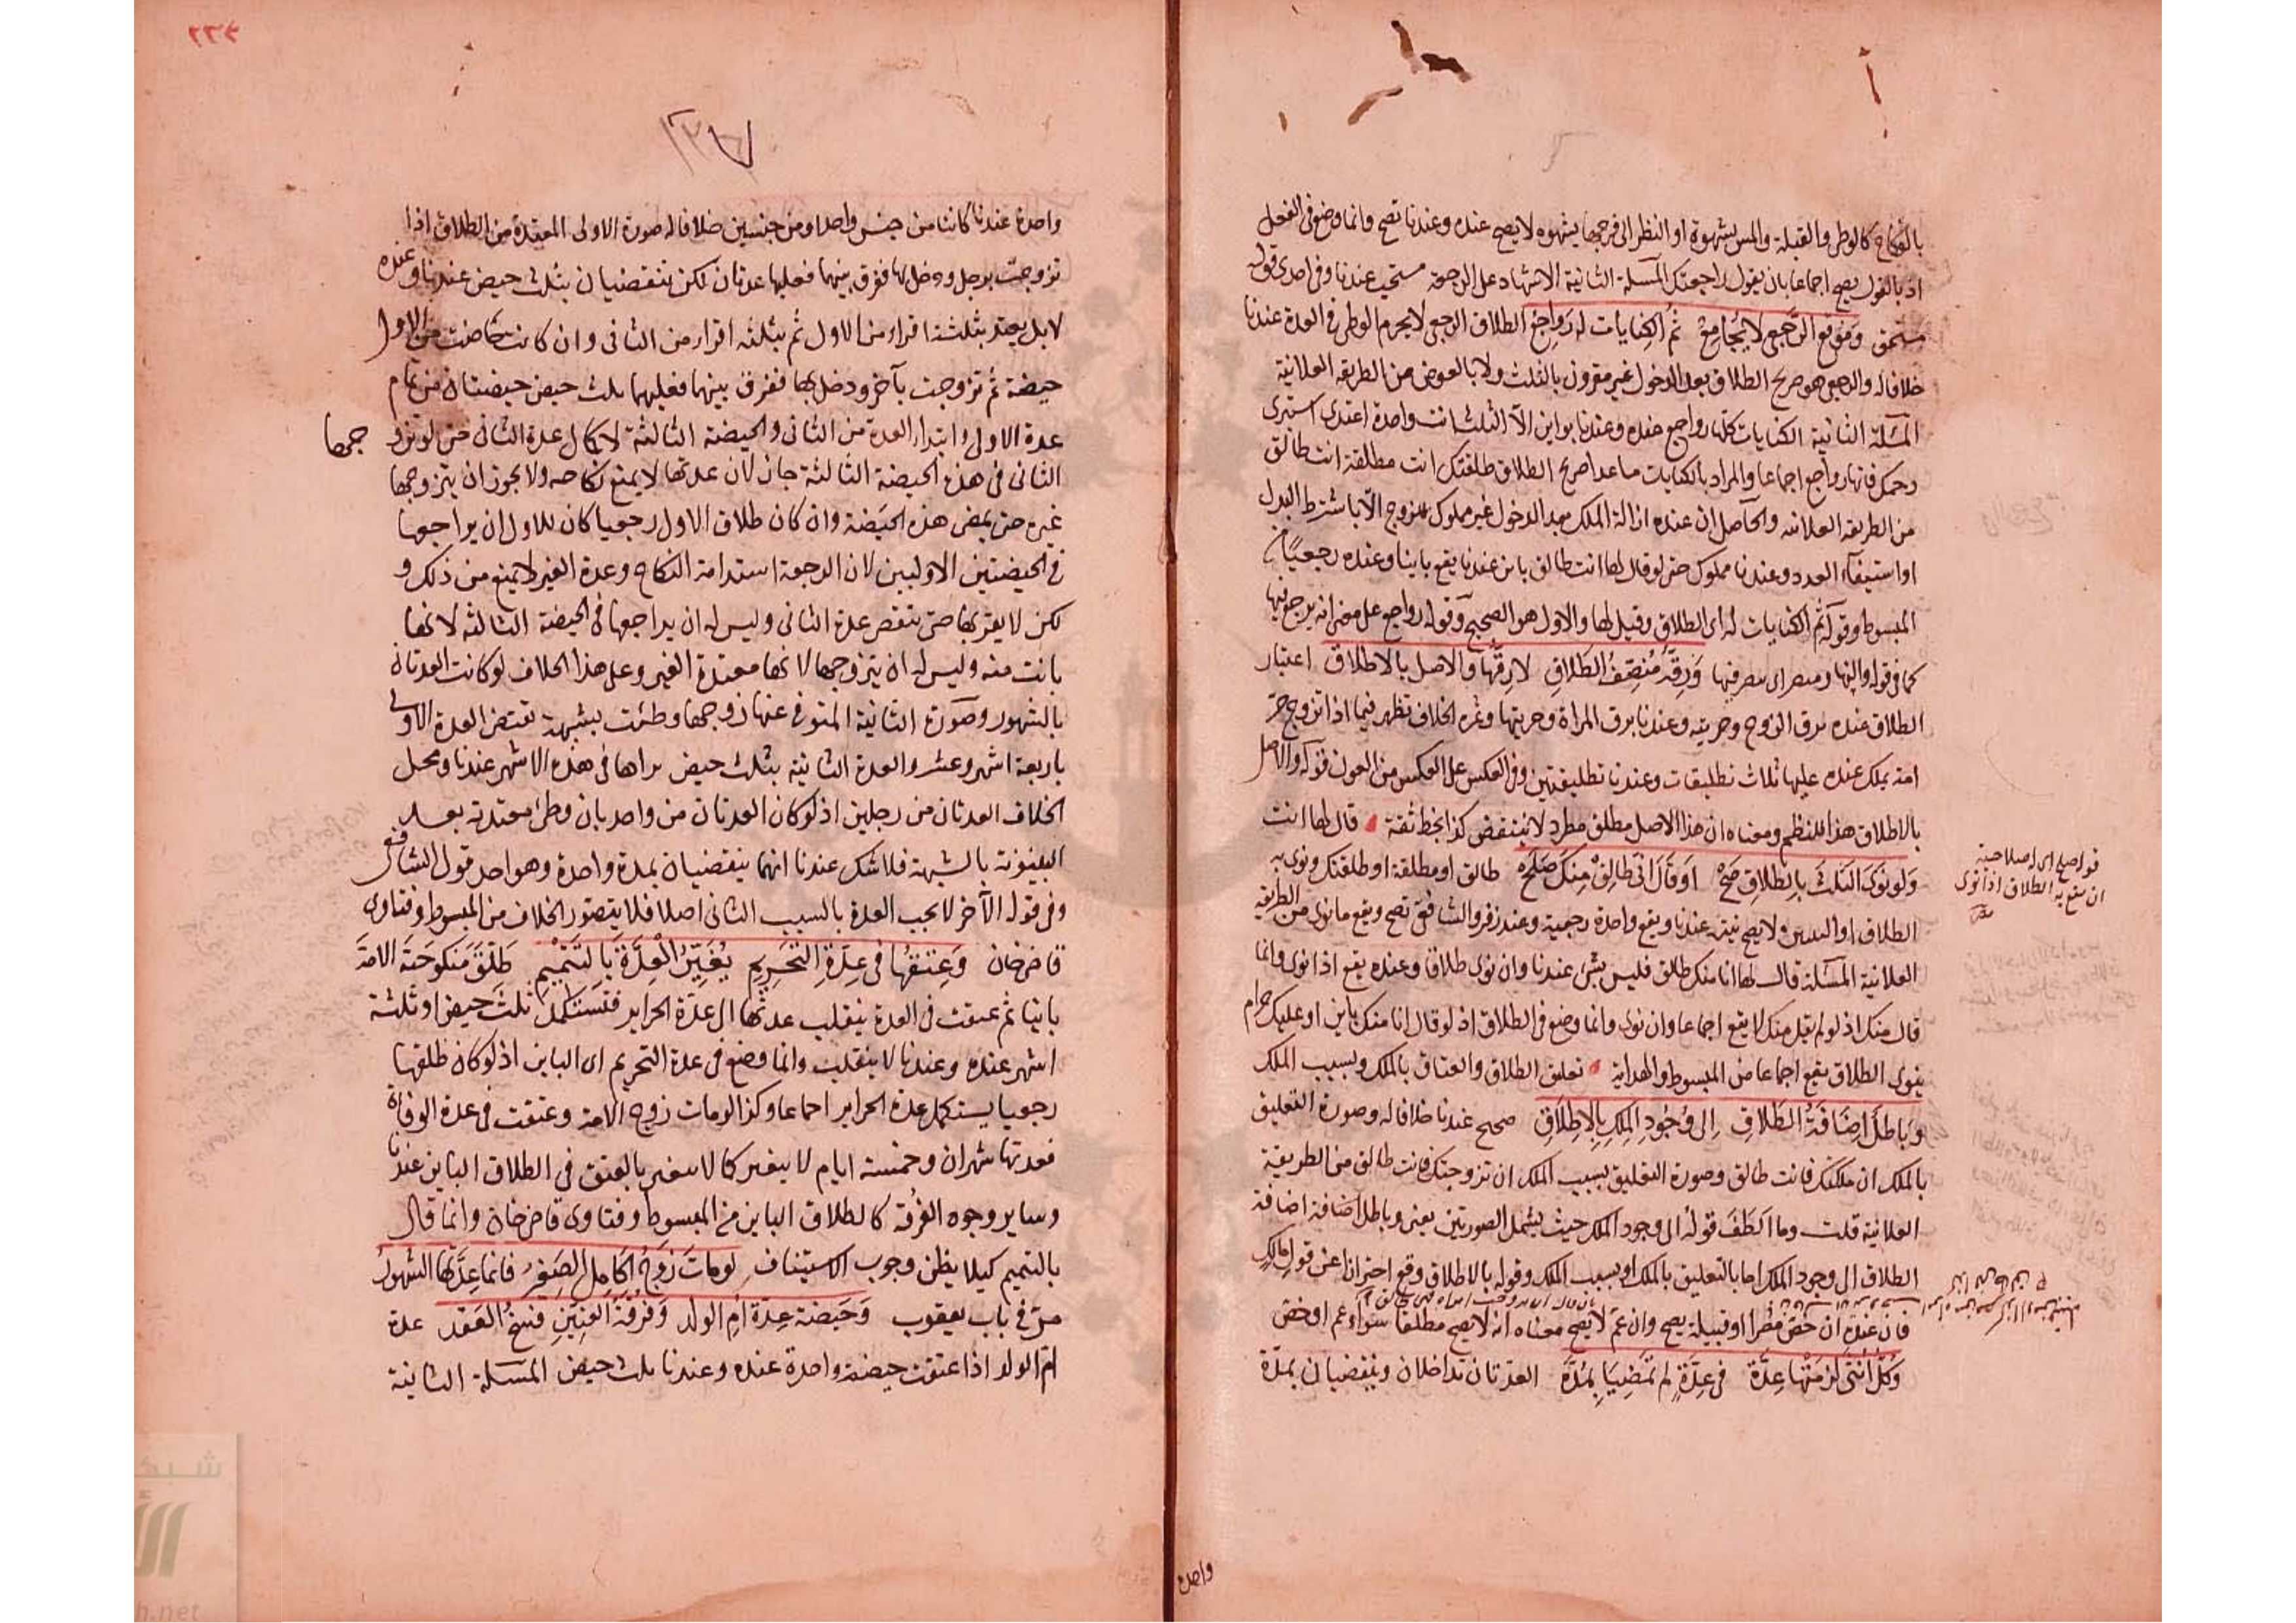 بالنكاح كالوطئ والقبلة والمس بشهوة او النظر الى فرجها بشهوه لا يصح عنده وعندنا تصح وانما وضع فى الفعل
اذ بالقول يصح اجماعا بان يقول راجعتك المسلة الثانية الاشهاد على الرجعة مستحب عندنا وفى احدى قوله
مستحق وموقع الرجعى لا يجامع ثم الكنايات له رواجع الطلاق الرجعى لا يحرم الوطى فى العدة عندنا
خلافا له والرجعى هو صريح الطلاق بعد الدخول غير مقرون بالثلث ولا بالعوض من الطريقه العلائية
المسئلة الثانية الكنايات كلها رواجع عنده وعندنا بواين الا الثلث انت واحدة اعتدى استبرى
رحمك فانها رواجع اجماعا والمراد بالكنايات ما عدا صريح الطلاق طلقتك انت مطلقة انت طالق
من الطريقه العلائيه والحاصل ان عنده ازالة الملك بعد الدخول غير مملوك للزوج الا باشتراط البدل
او استيفاء العدد وعندنا مملوك حتى لو قال لها انت طالق باين عندنا يقع باينا وعنده رجعيا من
المبسوط وقوله ثم الكنايات له اى الطلاق وقيل لها والاول هو الصحيح وقوله رواجع على معنى انه يرجع فيها
كما فى قوله والنهار مبصرا اى يبصر فيها ورقه منصف الطلاق لا رقها والاصل بالاطلاق اعتبار
الطلاق عنده برق الزوج وحريته وعندنا برق المراة وحريتها وثمره الخلاف تظهر فيما اذا تزوج حر
امة يملك عنده عليها ثلاث تطليقات وعندنا تطليقتين وفى العكس على العكس من العون قوله والاصل
بالاطلاق هذا للنظم ومعناه ان هذا الاصل مطلق مطرد لا ينتقض كذا بخط ثقة قال لها انت
ولو نوى الثلث بالطلاق صح او قال انى طالق منك صلح طالق او مطلقة او طلقتك ونوى به
الطلاق او الثنتين ولا يصح نيته عندنا ويقع واحدة رجعية وعند زفر والشافعى تصح ويقع ما نوى من الطريقه
العلائية المسئلة قال لها انا منك طالق فليس بشئ عندنا وان نوى طلاقا وعنده يقع اذا نوى وانما
قال منك اذ لو لم يقل منك لا يقع اجماعا وان نوى وانما وضع فى الطلاق اذ لو قال انا منك باين او عليك حرام
ينوى الطلاق يقع اجماعا من المبسوط والهداية تعليق الطلاق والعتاق بالملك وبسبب الملك
وباطل اضافة الطلاق الى وجود الملك بالاطلاق صحيح عندنا خلافا له وصورة التعليق
بالملك ان ملكتك فانت طالق وصورة التعليق بسبب الملك ان تزوجتك فانت طالق من الطريقة
العلائية قلت وما الطف قوله الى وجود الملك حيث يشمل الصورتين يعنى وباطل اضافة اضافة
الطلاق الى وجود الملك اما بالتعليق بالملك او بسبب الملك وقوله بالاطلاق وقع احترازا عن قول مالك
فان عنده ان خص مصرا او قبيلة يصح وان عم لا يصح معناه انه لا يصح مطلقا سواء عم او خص
وكل انثى لزمتها عدة فى عدة لم تمضيا بمدة العدتان تداخلان وينقضيان بمدة
قوله صلح اى له صلاحية
ان يقع به الطلاق اذا نوى
واحدة
واحدة عندنا كانتا من جنس واحد او من جنسين خلافا له صورة الاولى المعتدة من الطلاق اذا
تزوجت برجل ودخل بها ففرق بينهما فعليها عدتان لكن تنقضيان بثلث حيض عندنا وعنده
لا بل يعتد بثلثة اقراء من الاول ثم بثلثه اقراء من الثانى وان كانت حاضت من الاول
حيضة ثم تزوجت بآخر ودخل بها ففرق بينهما فعليها ثلث حيض حيضتان من تمام
عدة الاولى وابتداء العدة من الثانى والحيضة الثالثة لاكمال عدة الثانى حتى لو تزو جها
الثانى فى هذه الحيضة الثالثة جاز لان عدتها لا يمنع نكاحه ولا يجوز ان يتزوجها
غيره حتى يمضى هذه الحيضة وان كان طلاق الاول رجعيا كان للاول ان يراجعها
فى الحيضتين الاوليين لان الرجعة استدامة النكاح وعدة الغير لا يمنع من ذلك و
لكن لا يقربها حتى تنقض عدة الثانى وليس له ان يراجعها فى الحيضة الثالثه لانها
بانت منه وليس له ان يتزوجها لانها معتدة الغير وعلى هذا الخلاف لو كانت العدتان
بالشهور وصورة الثانية المتوفى عنها زوجها وطئت بشبهة تقتضى العدة الاولى
باربعة اشهر وعشر والعدة الثانية بثلث حيض تراها فى هذه الاشهر عندنا ومحل
الخلاف العدتان من رجلين اذ لو كان العدتان من واحد بان وطئ معتدته بعد
البينونة بالشبهة فلا شك عندنا انهما ينقضيان بمدة واحدة وهو احد قول الشافعى
وفى قوله الآخر لا يجب العدة بالسبب الثانى اصلا فلا يتصور الخلاف من المبسوط وفتاوى
قاضى خان وعتقها فى عدة التحريم يغير العدة بالتتميم طلق منكوحته الامة
باينا ثم عتقت فى العدة ينقلب عدتها الى عدة الحراير فتستكمل ثلث حيض او ثلثة
اشهر عنده وعندنا لا ينقلب وانما وضع فى عدة التحريم اى الباين اذ لو كان طلقها
رجعيا يستكمل عدة الحراير اجماعا وكذا لو مات زوج الامة وعتقت فى عدة الوفاة
فعدتها شهران وخمسة ايام لا يتغير كما لا يتغير بالعتق فى الطلاق الباين عندنا
وساير وجوه الفرقة كالطلاق الباين من المبسوط وفتاوى قاضى خان وانما قال
بالتتميم كيلا يظن وجوب الاستيناف لو مات زوج الحامل الصغير فانما عدتها الشهور
مر فى باب يعقوب وحيضة عدة ام الولد وفرقة العنين فسخ العقد عدة
ام الولد اذا عتقت حيضة واحدة عنده وعندنا ثلث حيض المسئلة الثانية